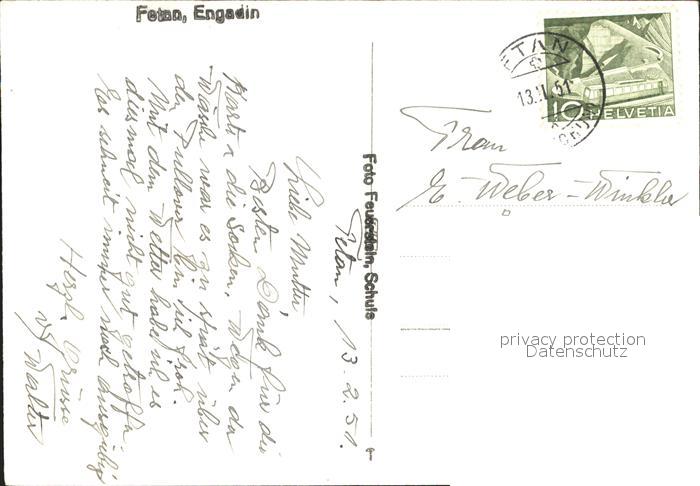 Fetan, Engadin
FETAN
13.II.51
10 HELVETIA
Foto Feuerstein, Schuls
Frau
E. Weber-Winkler
privacy protection
Datenschutz
Fetan, 13.2.51.
Liebe Mutter
Besten Dank für die
Karte & die Socken. Wegen der
Wäsche war es zu spät. Über
den Pullover bin ich froh.
Mit dem Wetter habe ich es
diesmal nicht gut getroffen.
Es schneit immer noch ausgiebig
Herzl. Grüsse
v/ Walter